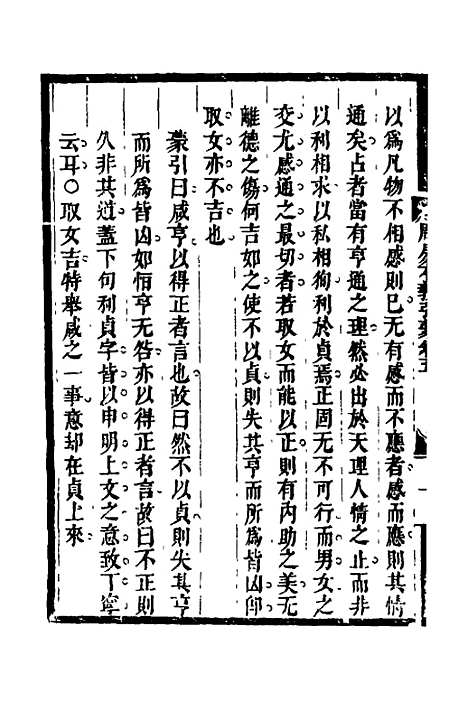 以爲凡物不相感則已无有感而不應者感而應則其情
通矣占者當有亨通之理然必出於天理人情之正而非
以利相求以私相徇利於貞焉正固无不可行而男女之
交尤感通之最切者若取女而能以正則有内助之美无
離德之傷何吉如之使不以貞則失其亨而所爲皆凶卽
取女亦不吉也
蒙引曰咸亨以得正者言也故曰然不以貞則失其亨
而所爲皆凶如恒亨无咎亦以得正者言故曰不正則
久非其道蓋下句利貞字皆以申明上文之意致丁寧
云耳○取女吉特舉咸之一事意却在貞上來